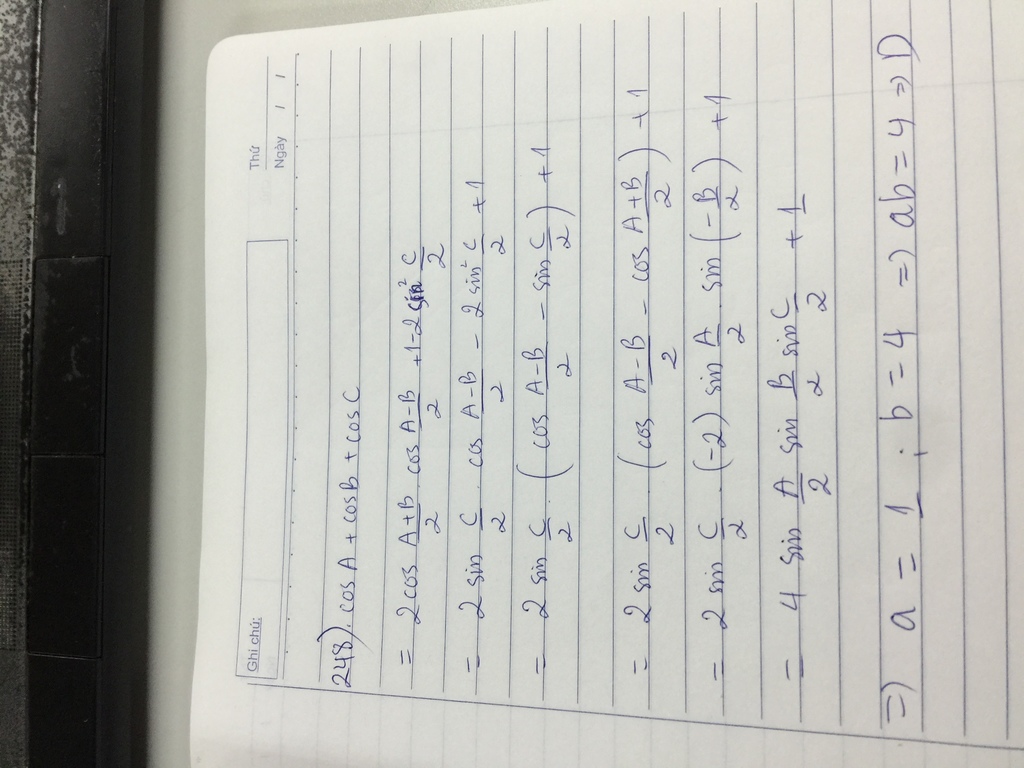 Ghi chú:
Thứ
Ngày / /
248). cosA + cosB + cosC
= 2cos (A+B)/2 . cos (A-B)/2 + 1 - 2 sin² C/2
= 2 sin C/2 . cos (A-B)/2 - 2 sin² C/2 + 1
= 2 sin C/2 . (cos (A-B)/2 - sin C/2) + 1
= 2 sin C/2 . (cos (A-B)/2 - cos (A+B)/2) + 1
= 2 sin C/2 . (-2) sin A/2 . sin (-B/2) + 1
= 4 sin A/2 sin B/2 sin C/2 + 1
=> a = 1 ; b = 4 => ab = 4 => D